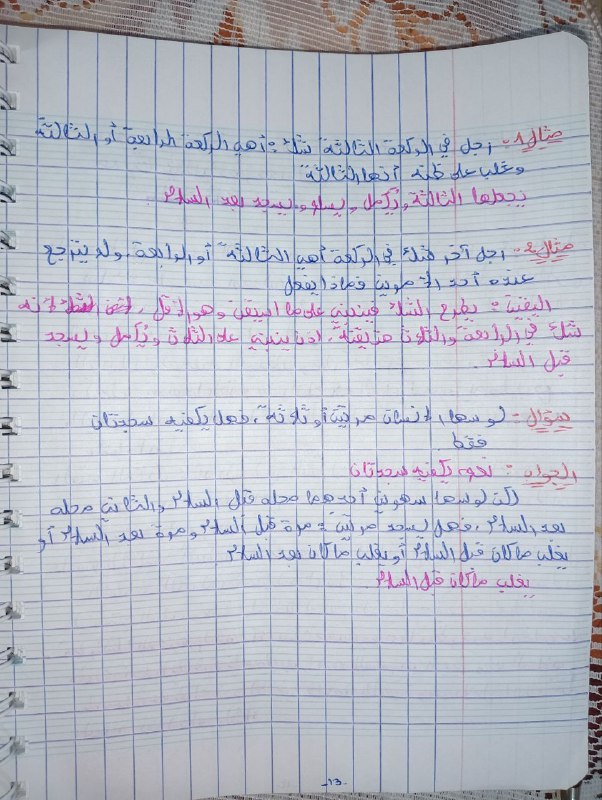 مثال 1:- رجل في الركعة الثالثة شك: أهي الركعة الرابعة أو الثالثة
وغلب على ظنه أنها الثالثة
نجعلها الثالثة ويُكمل ويسلم ويسجد بعد السلام.
مثال 2:- رجل آخر شك في الركعة أهي الثالثة أو الرابعة ولم يترجع
عنده أحد الأمرين فماذا يفعل
اليقين: يطرح الشك فيبني على ما استيقن وهو الأقل، لأنه
شك في الرابعة والثلاث متيقنة، إذا يبني على الثلاث ويُكمل ويسجد
قبل السلام.
سؤال: لو سها الإنسان مرتين أو ثلاثة، فهل يكفيه سجدتان
فقط
الجواب: نعم يكفيه سجدتان
لكن لو سها سهوين أحدهما محله قبل السلام والثاني محله
بعد السلام، فهل يسجد مرتين: مرة قبل السلام ومرة بعد السلام أو
يغلب ما كان قبل السلام أو يغلب ما كان بعد السلام
يغلب ما كان قبل السلام.
-13-